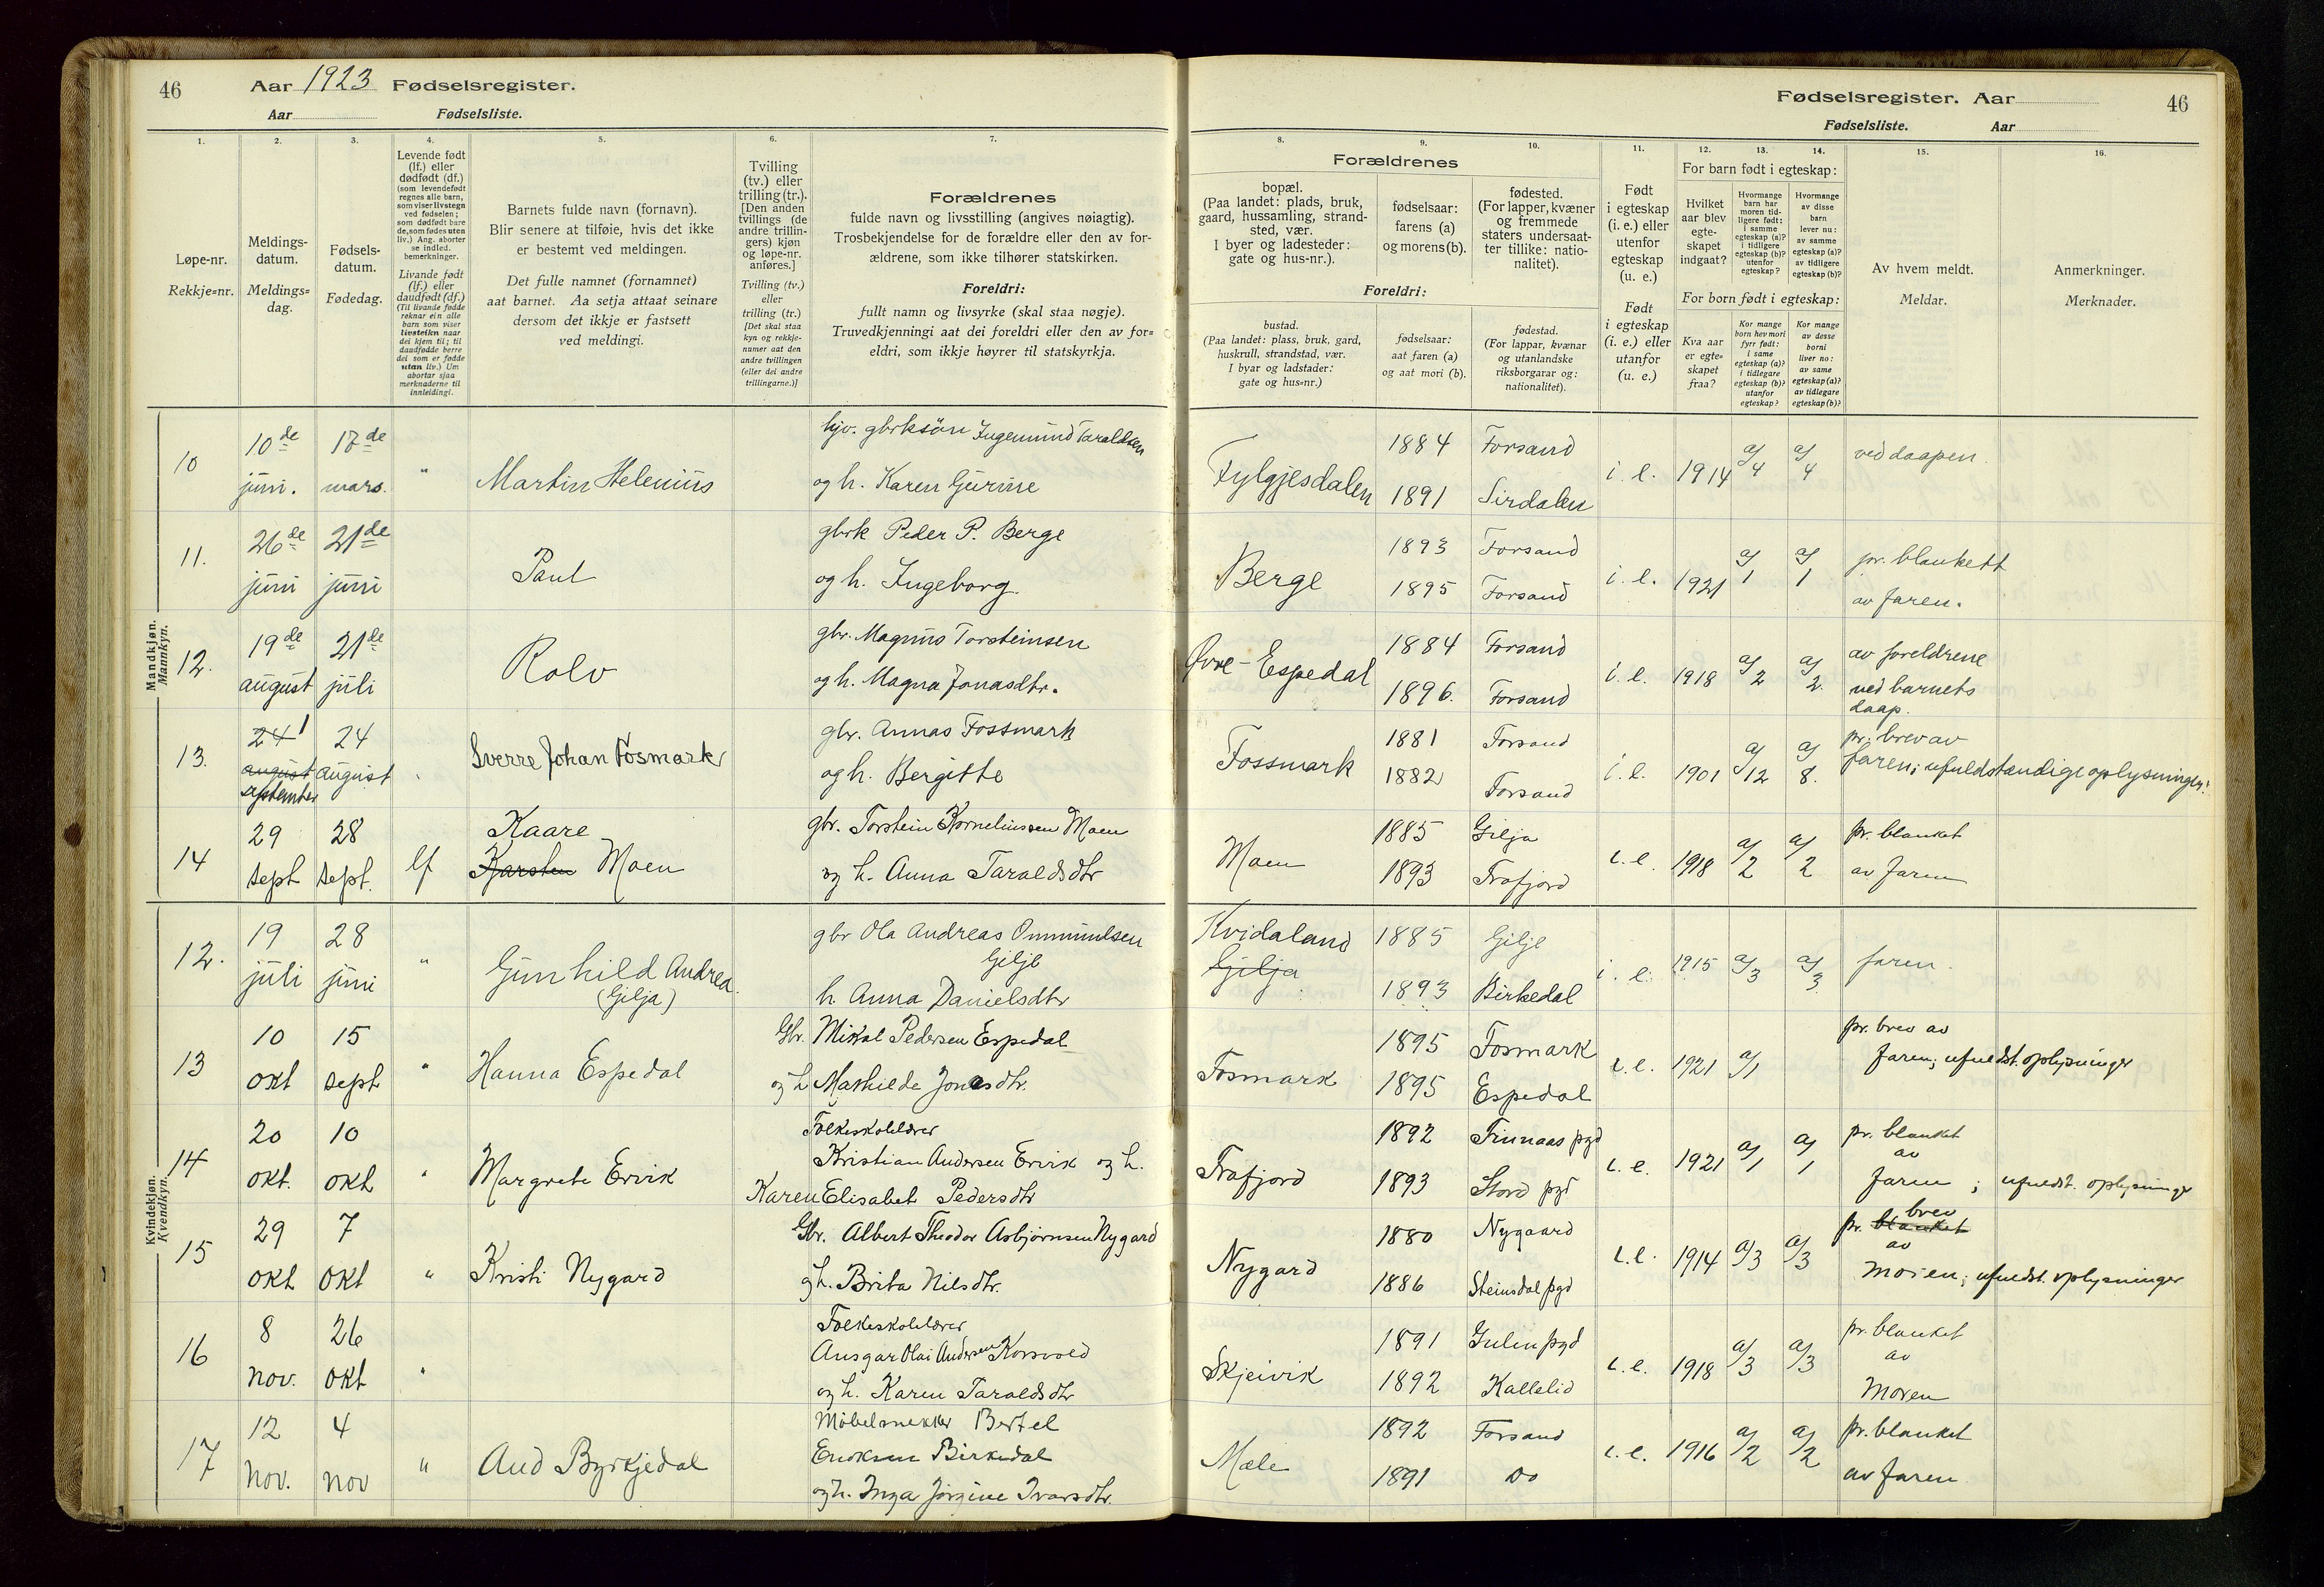 46
Aar 1923 Fødselsregister.
Aar Fødselsliste.
1. 2. 3. 4. 5. 6. 7.
Løpe-nr.
Rekkje=nr.
Meldings-
datum.
Meldings=
dag.
Fødsels-
datum.
Fødedag.
Levende født
(lf.) eller
dødfødt (df.)
(som levendefødt
regnes alle barn,
som viser livstegn
ved fødselen;
som dødfødt bare
de, som fødes uten
liv.) Ang. aborter
se indled.
bemerkninger.
Livande født
(lf.) eller
daudfødt (df.)
(Til livande fødde
reknar ein alle
barn som viser
livsteikn naar
dei kjem til; til
daudfødde berre
dei som er fødde
utan liv.) Um
abortar sjaa
merknaderne til
innleidingi.
Barnets fulde navn (fornavn).
Blir senere at tilføie, hvis det ikke
er bestemt ved meldingen.
Det fulle namnet (fornamnet)
aat barnet. Aa setja attaat seinare
dersom det ikkje er fastsett
ved meldingi.
Tvilling
(tv.) eller
trilling (tr.).
[Den anden
tvillings (de
andre trillin-
gers) kjøn
og løpe-nr.
anføres.]
Tvilling (tv.)
eller
trilling (tr.)
[Det skal staa
kyn og rekkje-
numer aat den
andre tvillingen
(eller dei andre
trillingarne.)]
Forældrenes
fulde navn og livsstilling (angives nøiagtig).
Trosbekjendelse for de forældre eller den av for-
ældrene, som ikke tilhører statskirken.
Foreldri:
fullt namn og livsyrke (skal staa nøgje).
Truvedkjenningi aat dei foreldri eller den av for=
eldri, som ikkje høyrer til statskyrkja.
Fødselsregister. Aar 46
Fødselsliste. Aar
8. 9. 10. 11. 12. 13. 14. 15. 16.
Forældrenes
bopæl.
(Paa landet: plads, bruk,
gaard, hussamling, strand-
sted, vær.
I byer og ladesteder:
gate og hus-nr.).
fødselsaar:
farens (a)
og morens (b).
fødested.
(For lapper, kvæner
og fremmede
staters undersaat-
ter tillike: natio-
nalitet).
Foreldri:
bustad.
(Paa landet: plass, bruk, gard,
huskrull, strandstad, vær.
I byar og ladstader:
gate og hus=nr.)
fødselsaar:
aat faren (a)
og aat mori (b).
fødestad.
(For lappar, kvænar
og utanlandske
riksborgarar og:
nationalitet).
Født
i egteskap
(i. e.) eller
utenfor
egteskap
(u. e.)
Født
i egteskap
(i. e.) eller
utanfor
egteskap
(u. e.)
For barn født i egteskap:
Hvilket
aar blev
egte-
skapet
indgaat?
Hvormange
barn har
moren tid-
ligere født:
i samme
egteskap (a)?
i tidligere
egteskap (b)?
utenfor
egteskap?
Hvormange
av disse
barn
lever nu:
av samme
egteskap (a)?
av tidligere
egteskap (b)?
For born født i egteskap:
Kva aar
er egte=
skapet
fraa?
Kor mange
born hev mori
fyrr født:
i same
egteskap (a)?
i tidlegare
egteskap (b)?
utanfor
egteskap?
Kor mange
av desse
borni
liver no:
av same
egteskap (a)?
av tidlegare
egteskap (b)?
Av hvem meldt.
Meldar.
Anmerkninger.
Merknader.
Mandkjøn.
Mannkyn.
10 10de juni. 17de mars. " Martin Helenius
gbrksön Ingemund Taraldsen
og h. Karen Gurine
Fylgjesdalen 1884 Forsand
1891 Sirdalen
i. e. 1914 a/4 a/4 ved daapen.
11. 26de juni 21de juni Paul
gbrk Peder P. Berge
og h. Ingeborg.
Berge 1893 Forsand
1895 Forsand
i. e. 1921 a/1 a/1 pr. blankett
av faren.
12. 19de august 21de juli Rolv
gbr. Magnus Torsteinsen
og h. Magna Jonasdtr.
Øvre-Espedal 1884 Forsand
1896. Forsand
i. e. 1918 a/2 a/2. av foreldrene
ved barnets
daap.
13. 24 1 august september 24 august Sverre Johan Fosmark
gbr. Annas Fossmark
og h. Bergitte
Fossmark 1881 Forsand
1882 Forsand
i. e. 1901 a/12 a/8. pr. brev av
faren; ufuldstændige oplysninger.
14 29 sept 28 sept. lf Kaare
Karsten Moen
gbr. Torstein Korneliussen Moen
og h. Anna Taraldsdtr
Moen 1885 Gilja
1893 Frafjord
i. e. 1918 a/2 a/2 pr. blanket
av faren
Kvindekjøn.
Kvendkyn.
12. 19 juli 28 juni " Gunhild Andrea.
(Gilja)
gbr Ola Andreas Ommundsen
Gilje
h. Anna Danielsdtr
Kvidaland
Gilja
1885 Gilje
1893 Birkedal
i. e. 1915 a/3 a/3. faren.
13 10 okt 15 sept " Hanna Espedal
Gbr. Mikal Pedersen Espedal
og h Mathilde Jonasdtr.
Fosmark 1895 Fosmark
1895 Espedal
i. e. 1921 a/1 pr. brev av
faren; ufuldst. oplysninger
14 20 okt. 10 okt " Margrete Ervik
Folkeskolelærer
Kristian Andersen Ervik og h.
Karen Elisabet Pedersdtr
Frafjord 1892 Finnaas pgd
1893 Stord pgd
i. e. 1921 a/1 a/1 pr. blanket
av
faren ; ufuldst. oplysninger
15 29 okt 7 okt " Kristi Nygard
Gbr. Albert Theodor Asbjørnsen Nygard
og h. Brita Nilsdtr.
Nygard 1880 Nygaard
1886 Steinsdal pgd
i. e. 1914 a/3 a/3 pr. blanket brev
av
moren; ufuldst. oplysninger
16 8 nov. 26 okt "
Folkeskolelærer
Ansgar Olai Andersen Korsvold
og h. Karen Taraldsdtr
Skjeivik 1891 Gulen pgd
1892 Kallelid
i. e. 1918 a/3 a/3 pr. blanket
av
Moren
17 12 nov. 4 nov " Aud Byrkjedal
Møbelsnekker Bertel
Eriksen Birkedal
og h. Inga Jørgine Ivarsdtr.
Mæle 1892 Forsand
1891 Do
i. e. 1916 a/2 a/2 pr. blanket
av faren